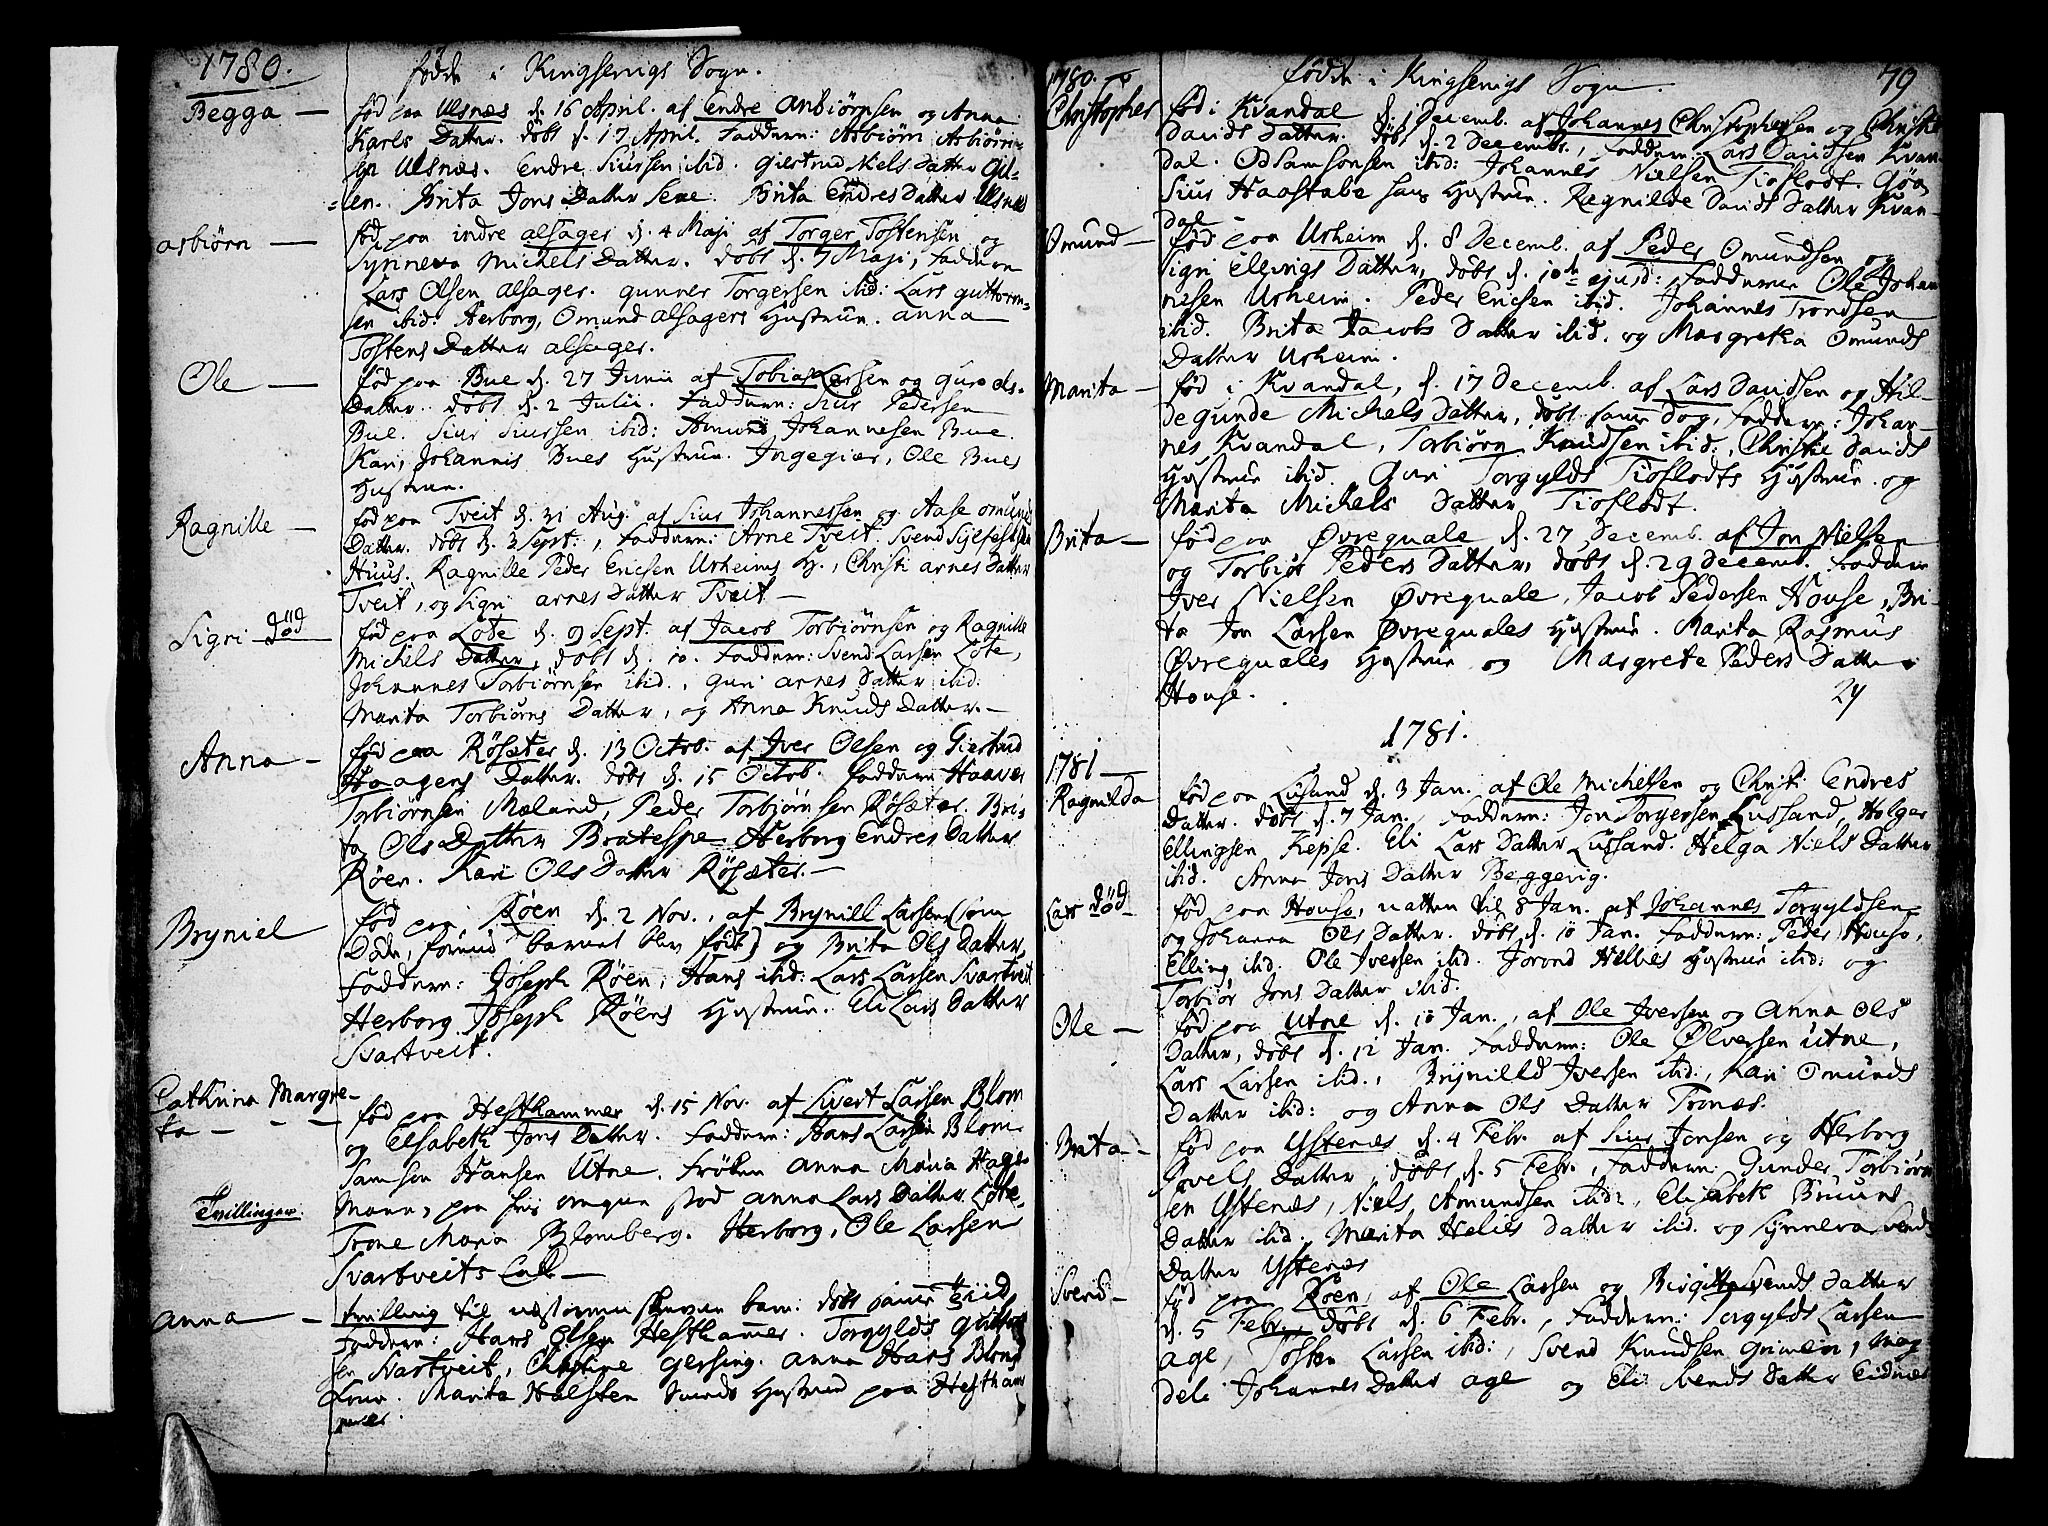 1780.
fødde i Kingservigs Sogn.
Begga —
fød paa Ulsnæs d. 16 April. af Endre Anbiørnsen og Anna
Karls Datter. døbt d. 17 April. Faddern: Asbiørn Asbiørn-
sen Ulsnæs. Endre Siursen ibid. Giertrud Niels Datter
len. Brita Jons Datter Sexe. Brita Endres Datter Ulsnæs
asbiørn —
fød paa indre alsager d. 4 Maji af Torger Tostensen og
Synneva Michels Datter. døbt d. 7 Maji, Faddern
Lars Olsen alsager. gunner Torgersen ibid: Lars guttorm-
sen ibid: Herborg, Omund alsagers Hustrue. anna
Tostens Datter alsager.
Ole —
fød paa Bue d. 27 Junii af Tobias Larsen og guro ols-
Datter. døbt d. 2 Julii. Faddern: Siur Pedersen
Bue. Siur Siursen ibid: Amund Johannesen Bue.
Kari, Johannis Bues Hustrue. Ingegier, Ole Bues
Hustrue.
Ragnille —
fød paa Tveit d. 31 Aug. af Siur Johannessen og Aase omunds
Datter. døbt d. 3 Sept:, Faddern: Arne Tveit. Svend Sylfestsen
Huus. Ragnille Peder Ericsen Urheims H., Christi arnes Datter
Tveit, og Sigri arnes Datter Tveit —
Sigri død
fød paa Lote d. 9 Sept. af Jacob Torbiørnsen og Ragnille
Michels Datter, døbt d. 10. Faddern: Svend Larsen Lote,
Johannes Torbiørnsen ibid., guri arnes Datter ibid:
Marita Torbiørns Datter, og Anna Knuds Datter. —
Anna —
fød paa Røsæter d. 13 Octob. af Iver Olsen og Giertrud
Haagens Datter. døbt d. 15 Octob. faddern Haaver
Torbiørnsen Mæland, Peder Torbjørnsen Røsæter. Bri-
ta Ols Datter Bratespe Herborg Endres Datter
Røen. Kari Ols Datter Røsæter. —
Bryniel
fød paa Røen d. 2 Nov., af Brynill Larsen (som
Døde, førend barnet blev født) og Brita Ols Datter,
Faddern: Joseph Røen, Hans ibid: Lars Larsen Svartveit
Herborg Joseph Røens Hustrue. Eli Lars Datter
Svartveit.
Cathrina Margre-
ta — — —
fød paa Hesthammer d. 15 Nov. af Sivert Larsen Blom
og Elsabeth Jons Datter. Faddern: Hans Larsen Blom
Samson Hansen Utne. Frøken Anna Maria Hage-
Mann, paa stod anna Lars Datter Lote.
Trone Maria Blomberg. Herborg, Ole Larsen
Svartveits
Tvillinger.
anna —
tvilling til barn: døbt samme Tiid
Faddern: Hans Olsen Hesthammer. Torgylds
Svartveit, Christine gersing. anna Hans Blom
Marita Halsten Hustrue paa Hestham
mer.
1780.
fødde i Kingservigs Sogn.
79
Christopher
fød i Kvandal d. 1 Decemb. af Johannes Christophersen og Christi
Davids Datter. døbt d. 2 Decembr., Faddern: Lars Davidsen Kvan-
dal. Od Samsonsen ibid: Johannes Nielsen Tioflodt. Gøa
Siur Haastabe hans Hustrue. Ragnilde Davids Datter Kvan-
dal
Omund —
fød paa Urheim d. 8 Decemb. af Peder Omundsen og
Sigri Ellings Datter, døbt d. 10de ejusd: Faddern Ole Johan-
nesen Urheim. Peder Ericsen ibid. Johannes Trondsen
ibid. Brita Jacobs Datter ibid. og Margreta Omunds
Datter Urheim.
Marita —
fød i Kvandal, d. 17 Decemb. af Lars Davidsen og Hil-
degunde Michels Datter, døbt samme Dag, Faddern: Johan-
nes Kvandal, Torbiørn Knudsen ibid:, Christie Davids
Hustrue ibid. Guri Torgylds Tioflodts Hustrue og
Marita Michels Datter Tioflodt.
Brita —
fød paa Øvrequale d. 27 Decemb. af Jon Nielsen
og Torbiør Peders Datter, døbt d. 29 Decemb. Faddern
Iver Nielsen Øvrequale, Jacob Pedersen House, Bri-
ta Jon Larsen Øvrequales Hustrue. Marita Rasmus
Øvrequales Hustrue og Margrete Peders Datter
House.
24
1781.
1781 —
Ragnilda
fød paa Lusand d. 3 Jan. af Ole Michelsen og Christi Endres
Datter. døbt d. 7 Jan., Faddern: Jon Torgersen Lussand, Holger
Ellingsen Kepse. Eli Lars Datter Lussand. Helga Niels Datter
ibid. Anna Jons Datter Beggevig.
Lars død
fød paa House, natten til 8 Jan. af Johannes Torgyldsen
og Johanna Ols Datter. døbt d. 10 Jan. Faddern: Peder House,
Elling ibid. Ole Iversen ibid. Jorond Helies Hustrue ibid: og
Torbiør Jons Datter ibid.
Ole —
fød paa Utne d. 10 Jan., af Ole Iversen og Anna Ols
Datter, døbt d. 12 Jan. Faddern: Ole Ølversen Utne,
Lars Larsen ibid., Brynilld Iversen ibid:, Kari Omunds
Datter ibid: og Anna Ols Datter Tronæs.
Brita —
fød paa Ystenæs d. 4 Febr. af Siur Jonsen og Herborg
Povels Datter, døbt d. 5 Febr., Faddern: Gunder Torbiørn-
sen Ystenæs, Niels Amundsen ibid:, Elisabeth Bruuns
Datter ibid., Marita Helies Datter ibid. og Synneva Svends
Datter Ystenæs
Svend —
fød paa Røen, af Ole Larsen og Birgitta Svends Datter
d. 5 Febr., døbt d. 6 Febr., Faddern: Torgylds Larsen
age, Tosten Larsen ibid:, Svend Knudsen Grimen, Mag-
deli Johannes Datter age og Eli Svends Datter Eidnæs